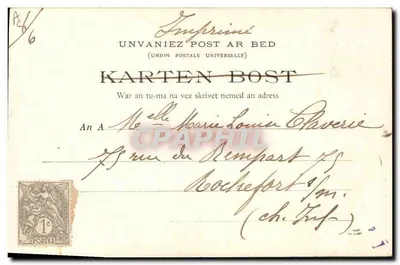 Imprimé
UNVANIEZ POST AR BED
(UNION POSTALE UNIVERSELLE)
KARTEN BOST
War an tu-ma na vez skrivet nemed an adress
An A Melle Marie Louise Claverie
75 rue du Rempart 75
Rochefort s/m.
(ch. Inf)
1c
CPAPHIL